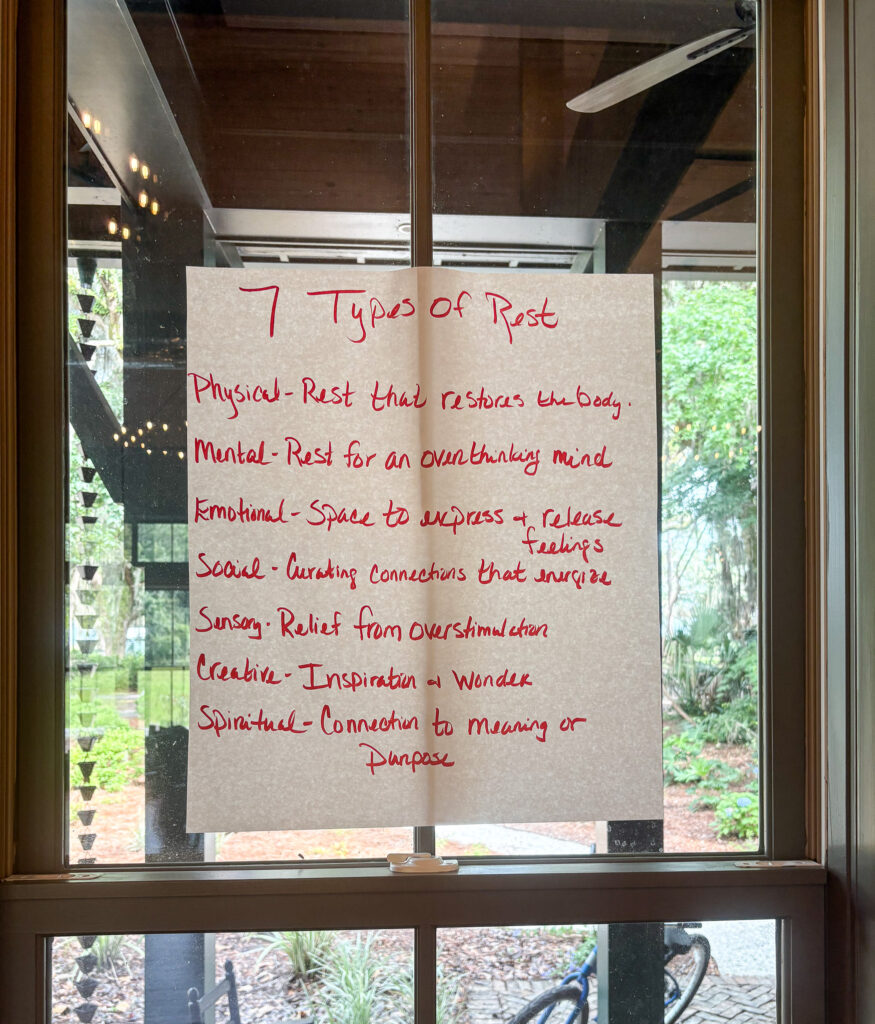 7 Types Of Rest
Physical - Rest that restores the body.
Mental - Rest for an overthinking mind
Emotional - Space to express + release
feelings
Social - Curating connections that energize
Sensory - Relief from overstimulation
Creative - Inspiration + Wonder
Spiritual - Connection to meaning or
Purpose